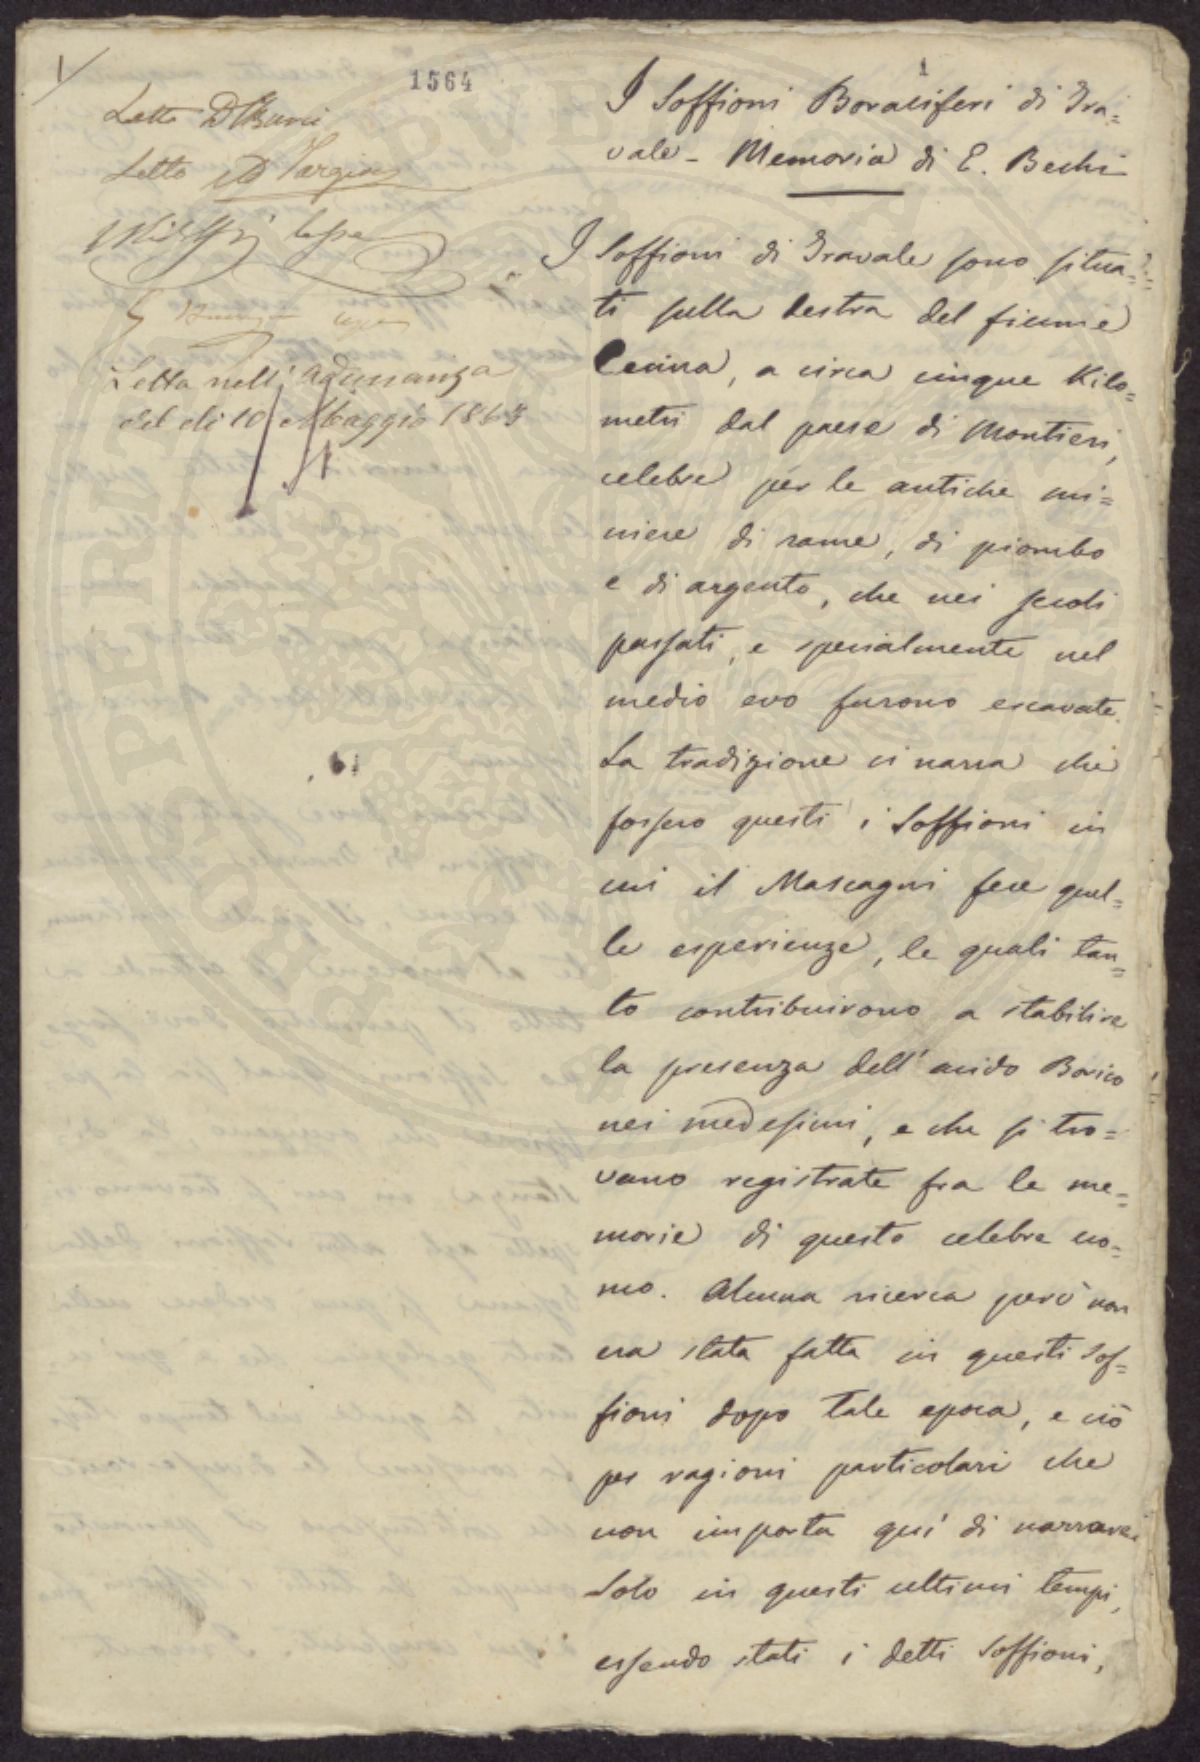 1
1564
1
Letto D Buri
Letto
Letta nell'adunanza
del dì 10 Maggio 1863
I Soffioni Boraciferi di Tra=
vale - Memoria di E. Bechi
I Soffioni di Travale sono situa=
ti sulla destra del fiume
Cecina, a circa cinque Kilo=
metri dal paese di Montieri,
celebre per le antiche mi=
niere di rame, di piombo
e di argento, che nei secoli
passati, e specialmente nel
medio evo furono escavate.
La tradizione ci narra che
fossero questi i Soffioni in
cui il Mascagni fece quel=
le esperienze, le quali tan=
to contribuirono a stabilire
la presenza dell'acido Borico
nei medesimi, e che si tro=
vano registrate fra le me=
morie di questo celebre uo=
mo. Alcuna ricerca però non
era stata fatta in questi Sof=
fioni dopo tale epoca, e ciò
per ragioni particolari che
non importa quì di narrare.
Solo in questi ultimi tempi,
essendo stati i detti Soffioni,